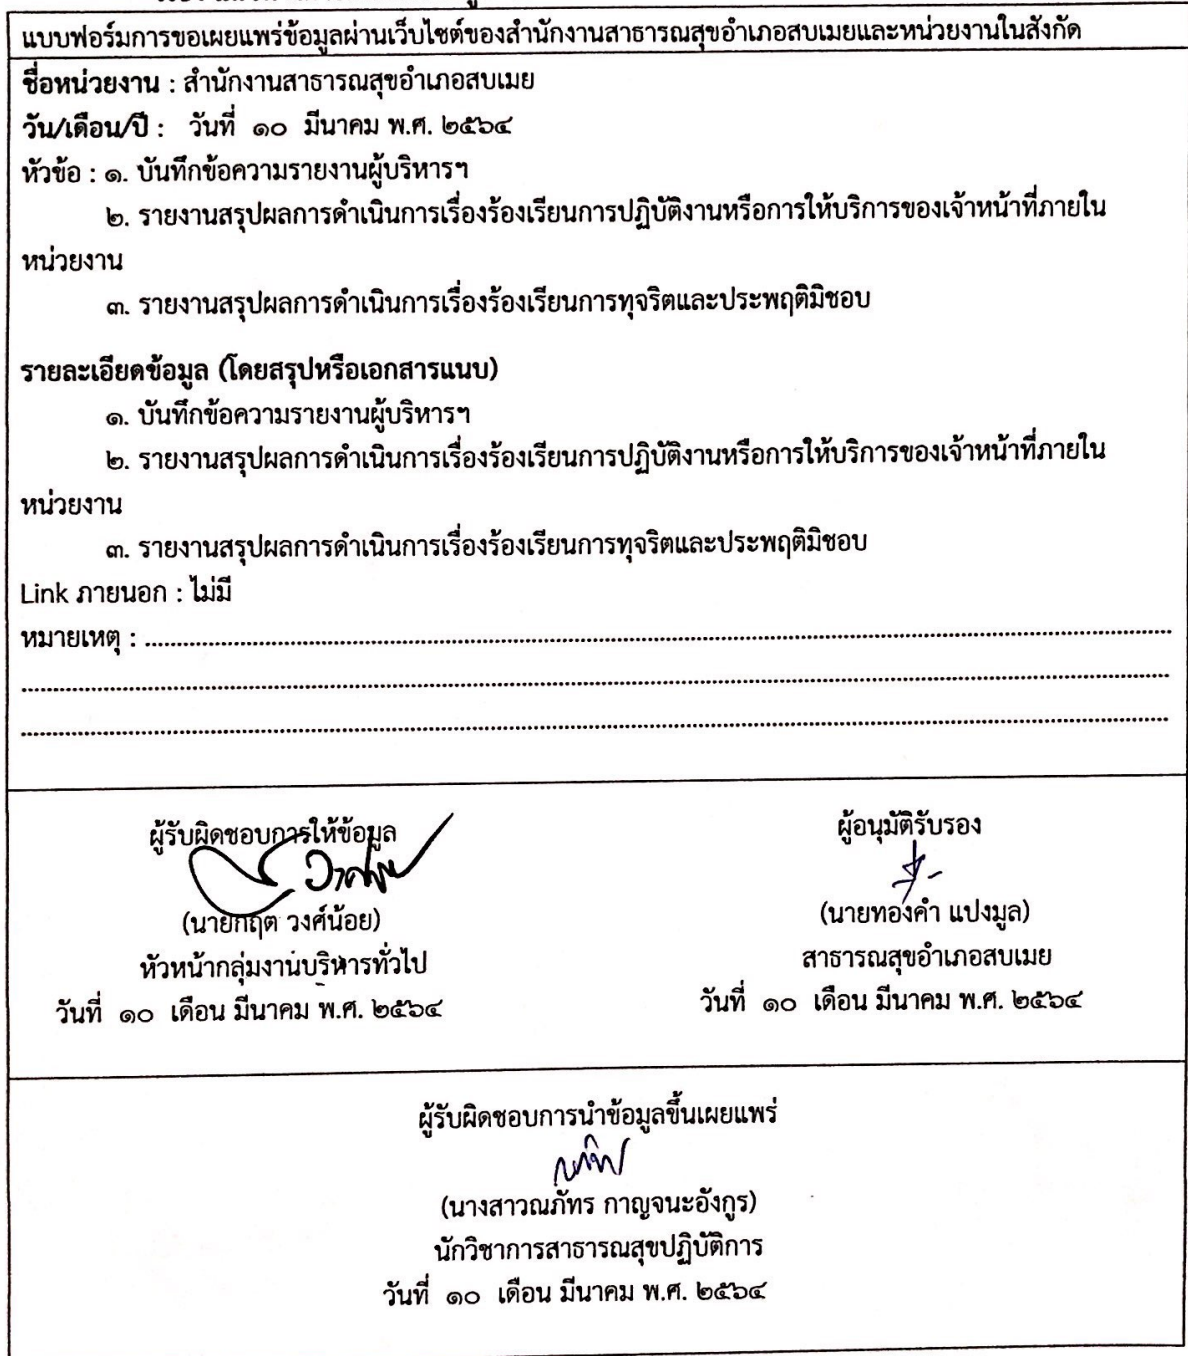 แบบฟอร์มการขอเผยแพร่ข้อมูลผ่านเว็บไซต์ของสำนักงานสาธารณสุขอำเภอสบเมยและหน่วยงานในสังกัด
ชื่อหน่วยงาน : สำนักงานสาธารณสุขอำเภอสบเมย
วัน/เดือน/ปี : วันที่ ๑๐ มีนาคม พ.ศ. ๒๕๖๔
หัวข้อ : ๑. บันทึกข้อความรายงานผู้บริหารฯ
๒. รายงานสรุปผลการดำเนินการเรื่องร้องเรียนการปฏิบัติงานหรือการให้บริการของเจ้าหน้าที่ภายใน
หน่วยงาน
๓. รายงานสรุปผลการดำเนินการเรื่องร้องเรียนการทุจริตและประพฤติมิชอบ
รายละเอียดข้อมูล (โดยสรุปหรือเอกสารแนบ)
๑. บันทึกข้อความรายงานผู้บริหารฯ
๒. รายงานสรุปผลการดำเนินการเรื่องร้องเรียนการปฏิบัติงานหรือการให้บริการของเจ้าหน้าที่ภายใน
หน่วยงาน
๓. รายงานสรุปผลการดำเนินการเรื่องร้องเรียนการทุจริตและประพฤติมิชอบ
Link ภายนอก : ไม่มี
หมายเหตุ :
ผู้รับผิดชอบการให้ข้อมูล
(นายกฤต วงศ์น้อย)
หัวหน้ากลุ่มงานบริหารทั่วไป
วันที่ ๑๐ เดือน มีนาคม พ.ศ. ๒๕๖๔
ผู้อนุมัติรับรอง
(นายทองคำ แปงมูล)
สาธารณสุขอำเภอสบเมย
วันที่ ๑๐ เดือน มีนาคม พ.ศ. ๒๕๖๔
ผู้รับผิดชอบการนำข้อมูลขึ้นเผยแพร่
(นางสาวณภัทร กาญจนะอังกูร)
นักวิชาการสาธารณสุขปฏิบัติการ
วันที่ ๑๐ เดือน มีนาคม พ.ศ. ๒๕๖๔